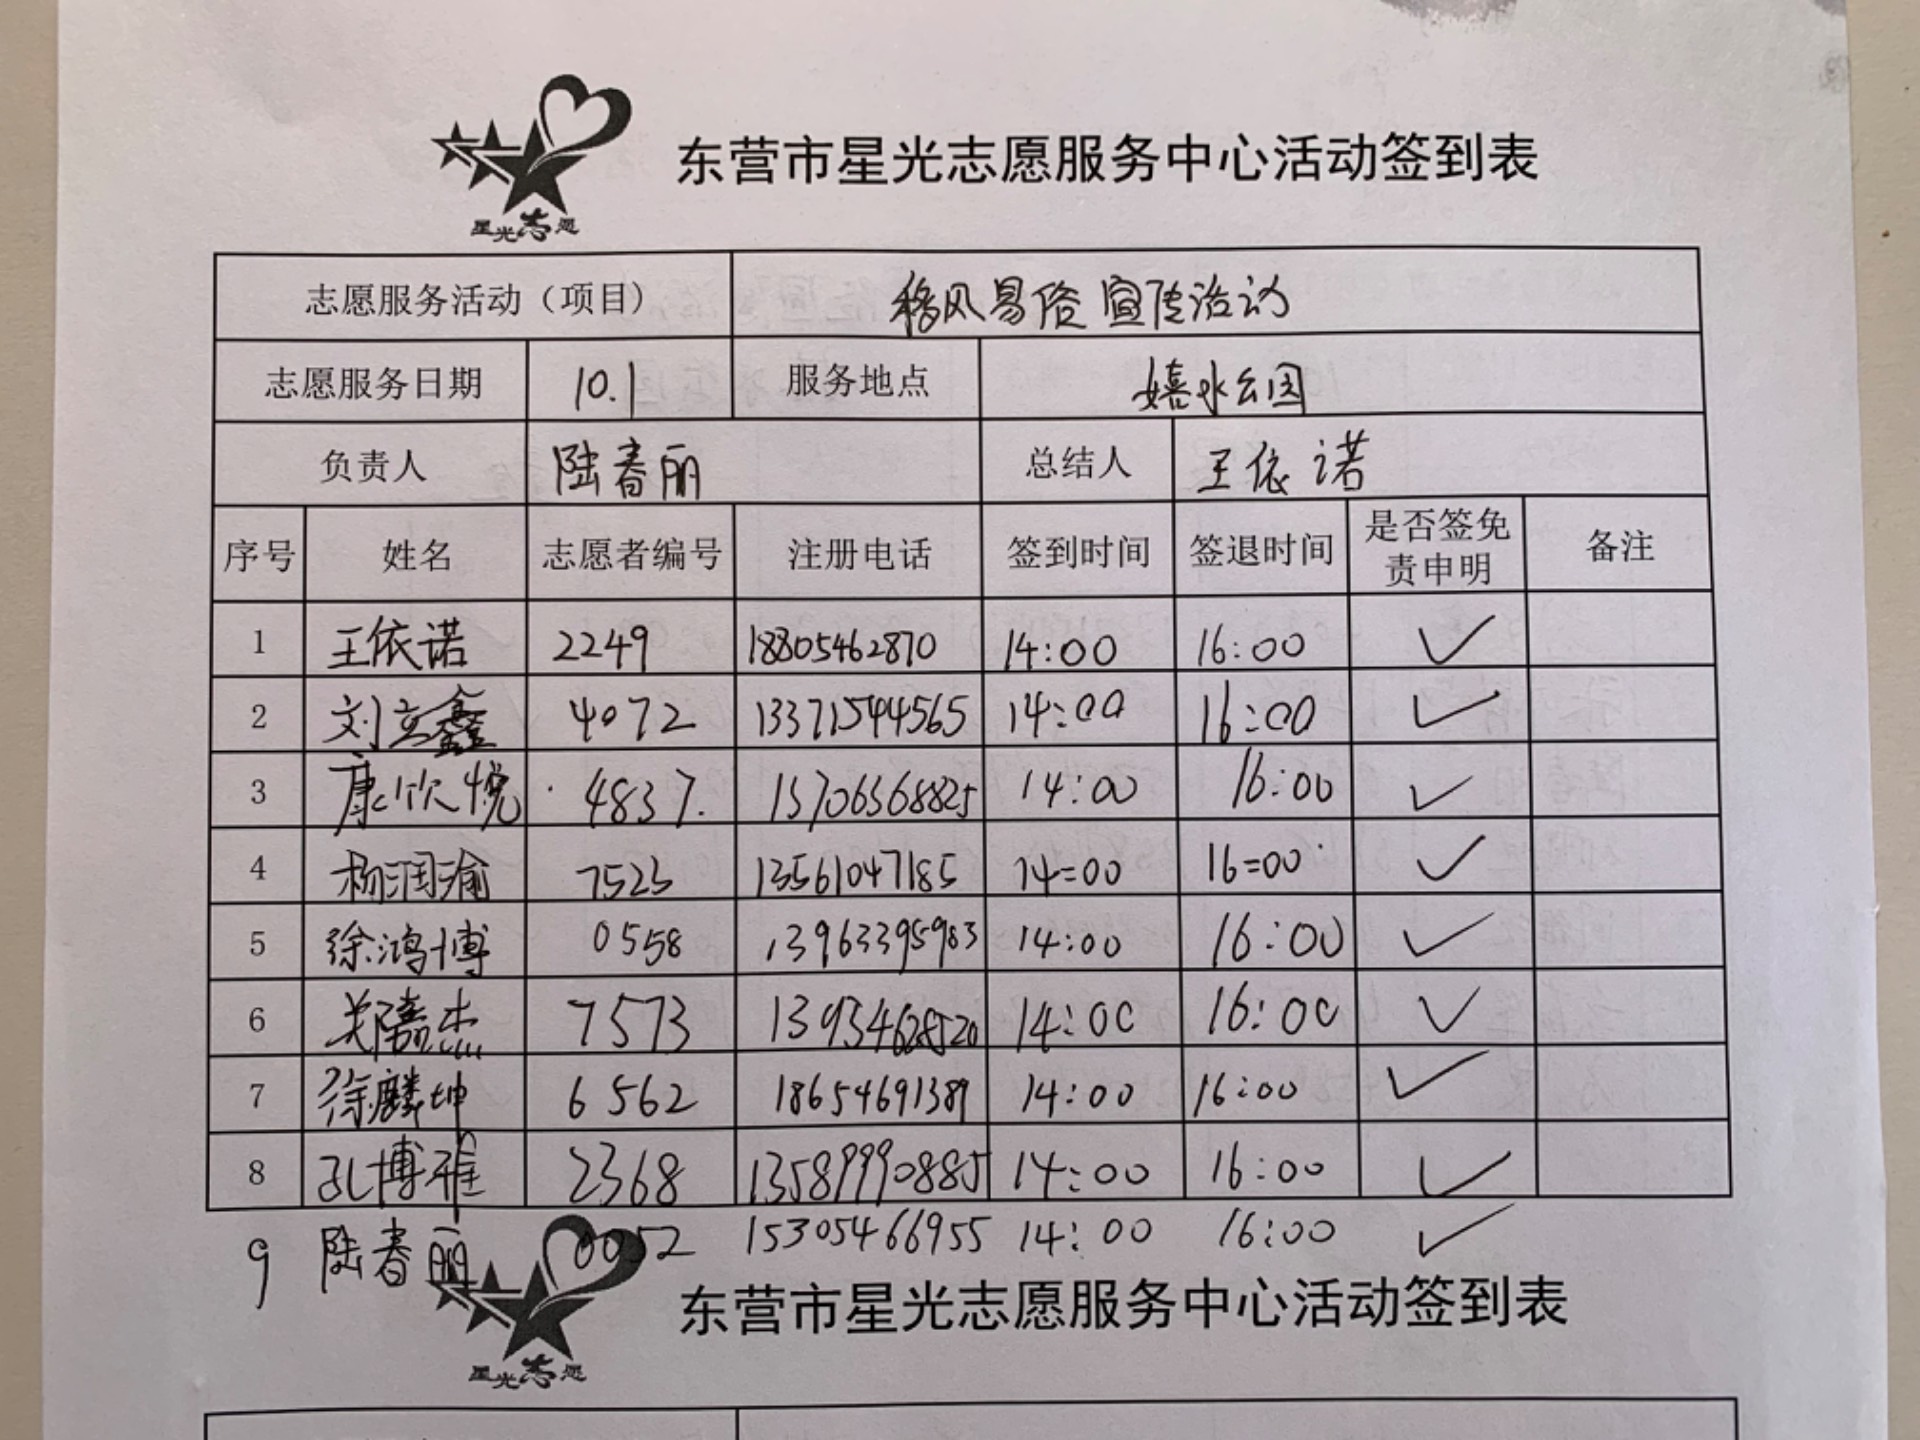 星光志愿
东营市星光志愿服务中心活动签到表
志愿服务活动（项目） 移风易俗宣传活动
志愿服务日期 10.1 服务地点 嬉水公园
负责人 陆春丽 总结人 王依诺
序号 姓名 志愿者编号 注册电话 签到时间 签退时间 是否签免责申明 备注
1 王依诺 2249 18805462870 14:00 16:00 ✓
2 刘立鑫 4072 13371544565 14:00 16:00 ✓
3 康欣悦 4837. 13706368825 14:00 16:00 ✓
4 杨润渝 7523 13561047185 14=00 16=00 ✓
5 徐鸿博 0558 13963395983 14:00 16:00 ✓
6 7573 13934628520 14:00 16:00 ✓
7 徐麟坤 6562 18654691389 14:00 16:00 ✓
8 孔博雅 2368 13589990885 14:00 16:00 ✓
9 陆春丽 0052 15305466955 14:00 16:00 ✓
星光志愿
东营市星光志愿服务中心活动签到表